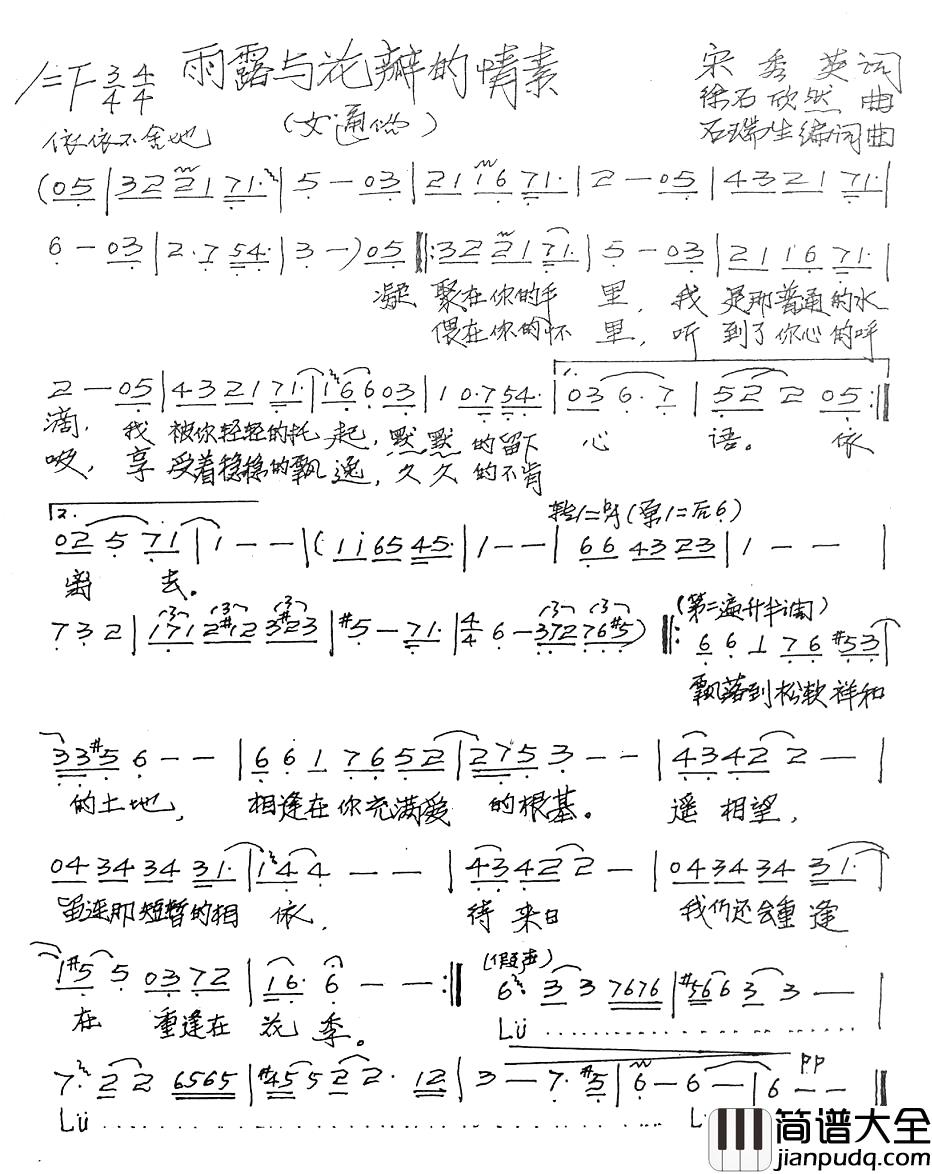 1=F 3/4 4/4 雨露与花瓣的情素 宋秀英词
徐石欣然 曲
依依不舍地 (女通俗) 石瑞生编词曲
(05|32 21 71·|5 - 03|21 16 71·|2 - 05|43 21 71·|
6 - 03|2·7 54·|3 -)05‖:32 21 71·|5 - 03|21 16 71·|
凝 聚在你的手 里, 我 是那普通的水
偎在你的怀 里, 听 到了你心的呼
2 - 05|43 21 71·|16 6 03|1 0·7 54·|1. 03 6·7|52 2 05:‖
滴, 我 被你轻轻的托 起, 默默 的留下 心 语。 依
吸, 享 受着稳稳的飘 逸, 久久 的不肯
转1= (第1=后6)
2. 02 5 71|1 - -|(11 65 45·|1 - -|66 43 23|1 - -|
离 去。
(第二遍升半调)
732|171 2#12 3#23|#5 - 71·|4/4 6 - 372 76#5)‖:66 1 76 #53|
飘落到松软祥和
33#5 6 - -|66 1 76 52|275 3 - -|43 42 2 -|
的土地, 相逢在你充满爱 的根基。 遥 相望,
04 34· 34 31·|14 4 - -|43 42 2 -|04 34 34 31·|
虽连那短暂的相 依, 待 来日 我仍还会重逢
(假声)
1#5 5 03 72|16· 6 - -:‖6· 3 3 7676|#56 6 3 3 -|
在 重逢在 花 季。 Lü
7· 2 2 6565|#45 5 2 2· 12|3 - 7· #5|6 - 6 -|6 - -‖
pp
Lü L
简谱大全
jianpudq.com